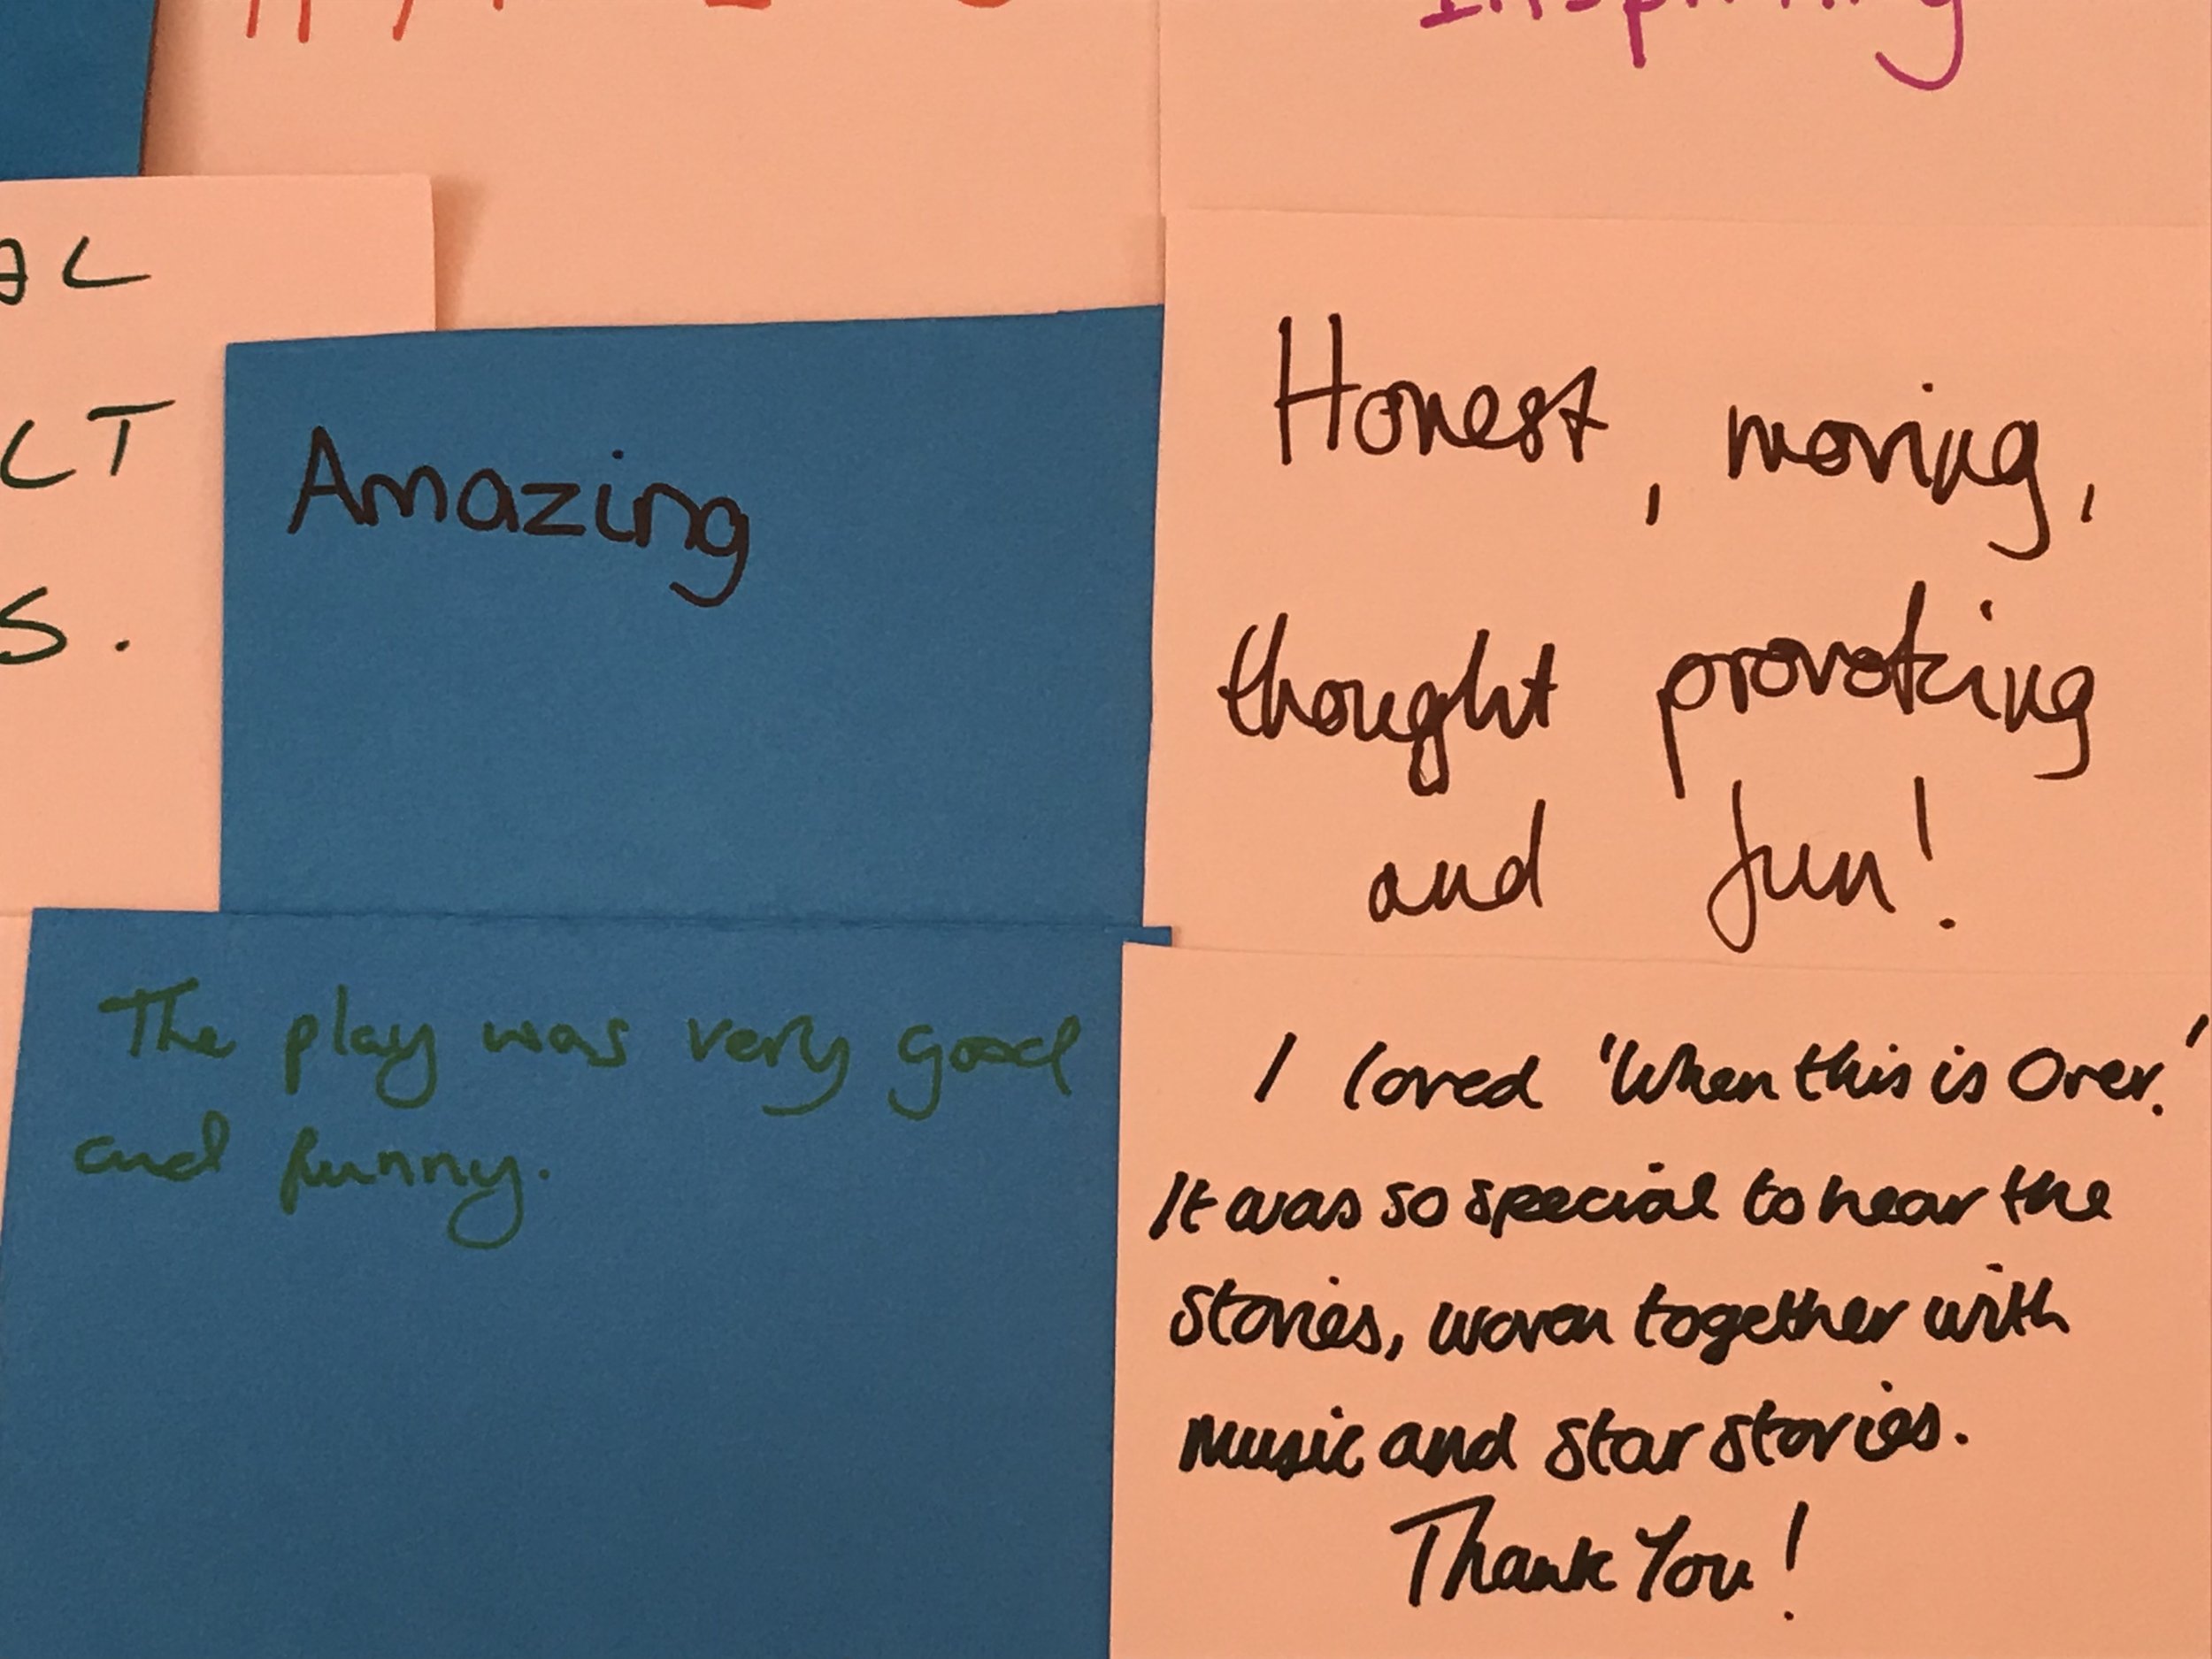 Inspiring
Amazing
Honest, moving,
thought provoking
and fun!
The play was very good
and funny.
I loved 'When this is Over.'
It was so special to hear the
stories, woven together with
music and star stories.
Thank You!